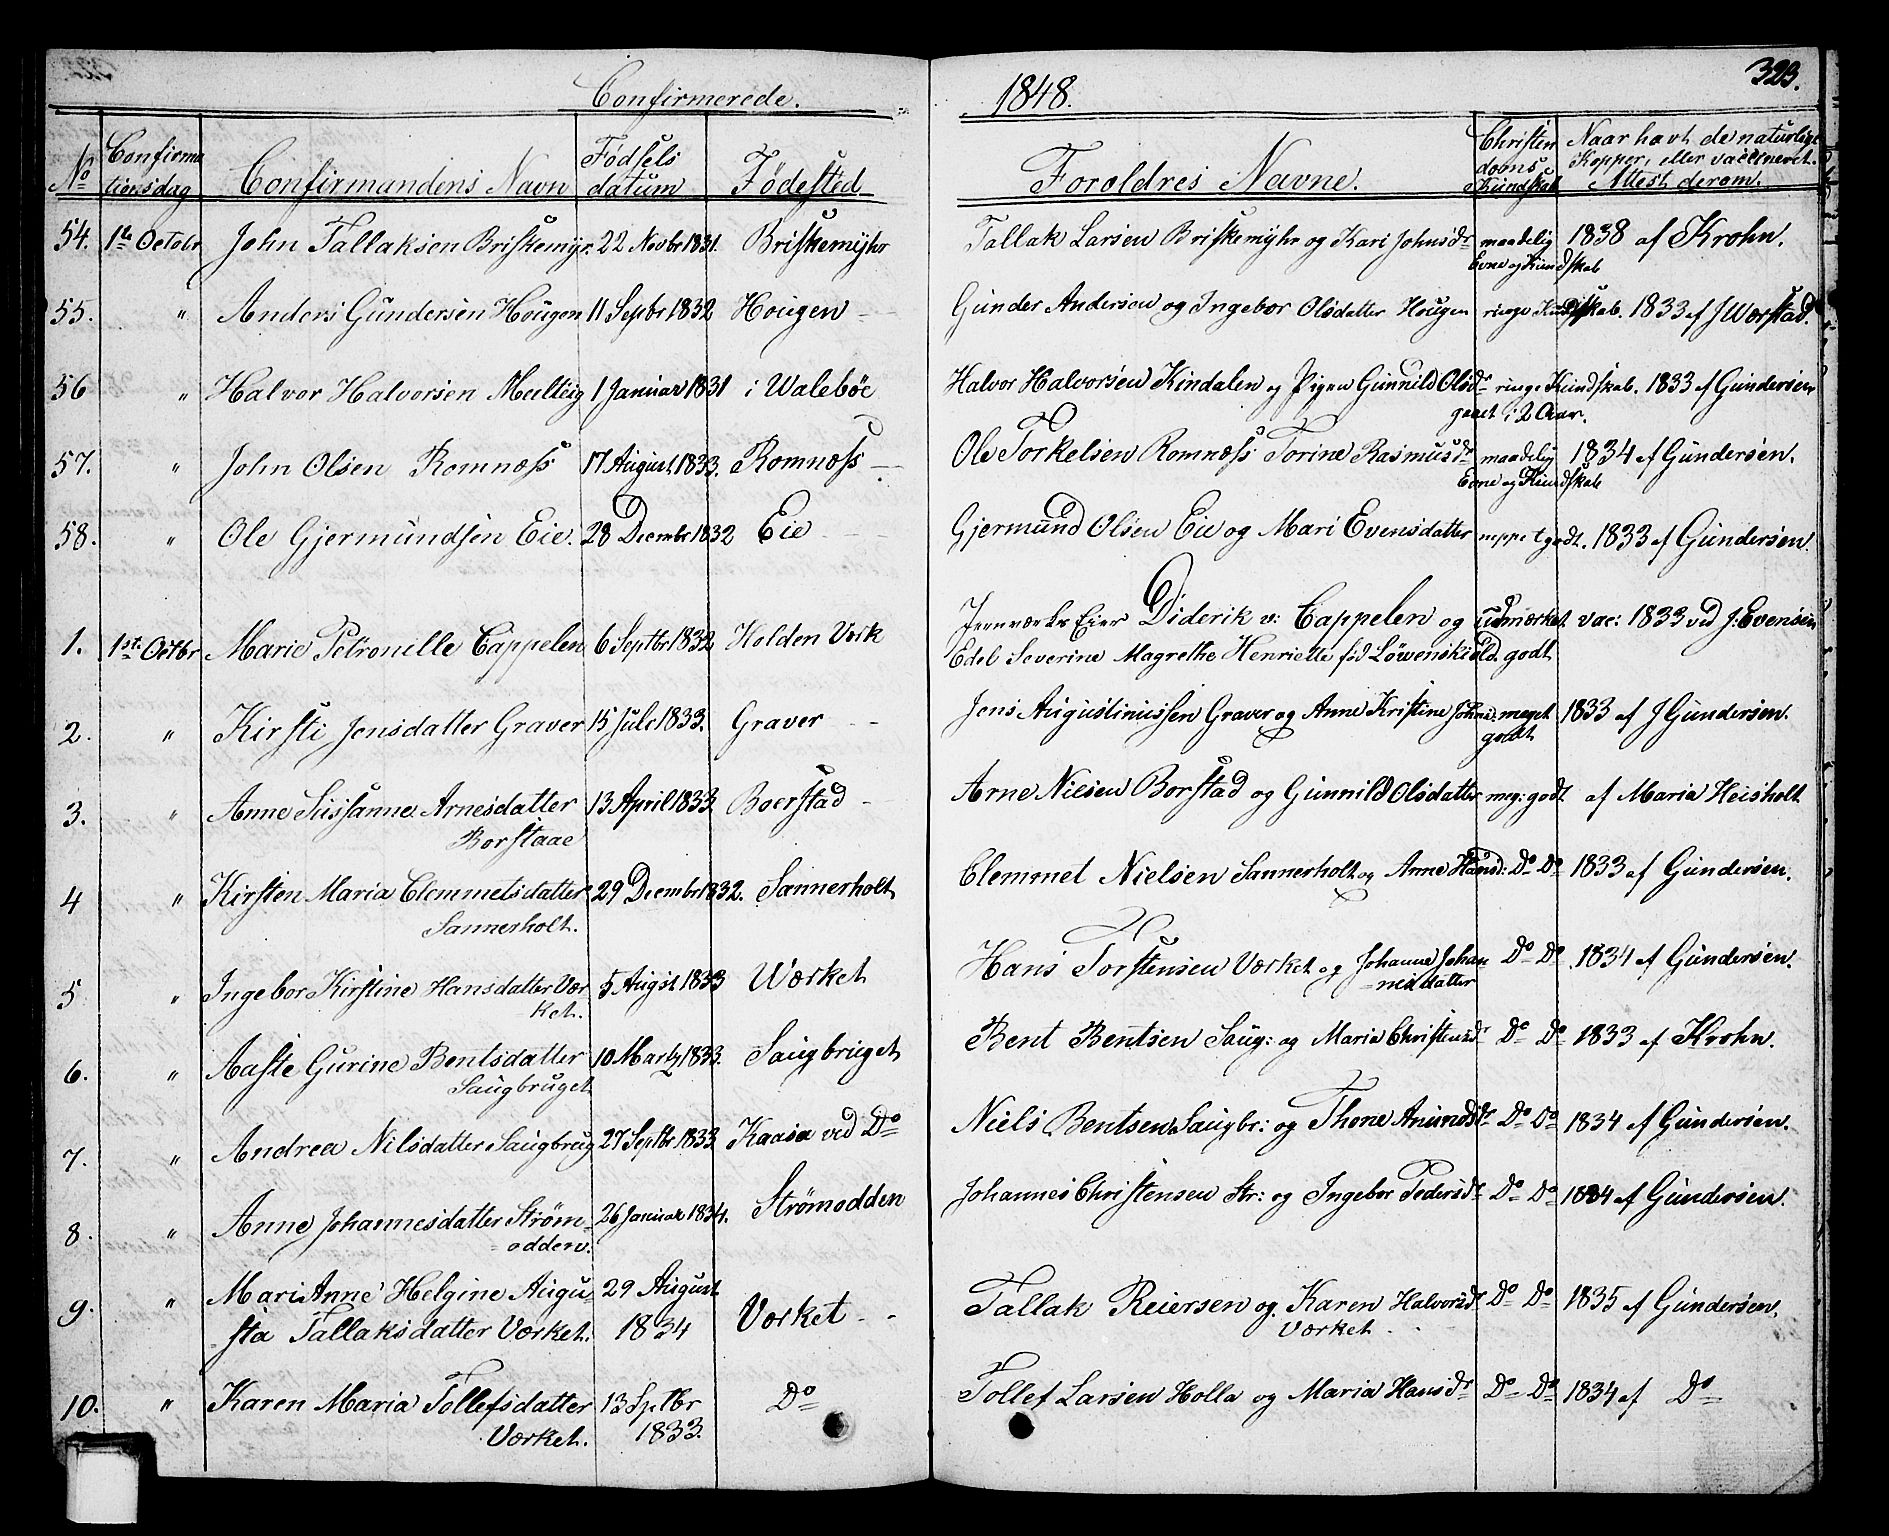 323.
Confirmerede. 1848.
No Confirmationsdag Confirmandens Navn Fødselsdatum Fødested Foroldres Navne. Christendoms Kundskab Naar havt de naturlige Kopper, eller vaccineret. Attest derom.
54. 1te Octobr John Tallaksen Briskemyr. 22 Novbr 1831. Briskemyhr Tallak Larsen Briskemyhr og Kari Johnsdr maadelig Evne og Kundskab 1838 af Krohn.
55. " Anders Gundersen Hougen 11 Septbr 1832 Hougen Gunder Andersen og Ingebor Olsdatter Hougen ringe Kundskab. 1833 af J Worstad.
56 " Halvor Halvorsen 1 Januar 1831 i Walebøe Halvor Halvorsen Kindalen og Pigen Gunnild Olsdr ringe Kundskab. 1833 af Gundersen
gaaet i 2 Aar.
57. " John Olsen Romnæss 17 August 1833. Romnæss Ole Torkelsen Romnæss Torine Rasmusdr maadelig Evne og Kundskab 1834 af Gundersen.
58. " Ole Gjermundsen Eie. 28 Decmbr 1832 Eie Gjermund Olsen Eie og Mari Evensdatter neppe godt. 1833 af Gundersen.
1. 1st. Octbr Marie Petronille Cappelen 6 Septbr 1832 Holden Værk Jernværks Eier Diderik v: Cappelen og udmærket vac: 1833 ved J: Evensen
Edel Severine Magrethe Henriette fød Løwenskiold. godt
2. " Kirsti Jensdatter Graver 15 Juli 1833. Graver Jens Augustinussen Graver og Anne Kristine Johns. meget godt 1833 af J Gundersen.
3. " Anne Sussanne Arnesdatter 13 April 1833 Boerstad Arne Nielsen Borstad og Gunnild Olsdatter meg: godt af Maria Heisholt
Borstaae
4 " Kirsten Maria Clemmetsdatter 29 Decmbr 1832. Sannerholt Clemmet Nielsen Sannerholt og Anne Hansd: Do Do 1833 af Gundersen.
Sannerholt.
5 " Ingebor Kirstine Hansdatter Vær 5 August 1833 Wærket Hans Torstensen Værket og Johanne Johan Do Do 1834 af Gundersen.
ket. =nesdatter
6. " Aaste Gurine Bentsdatter 10 Martz 1833. Saugbruget Bent Bentsen Saug: og Maria Christensdr Do Do 1833 af Krohn.
Saugbruget
7. " Andrea Nilsdatter Saugbrug 27 Septbr 1833 Kaasa ved Do Niels Bentsen Saugbr: og Thone Amundsdr Do Do 1834 af Gundersen.
8. " Anne Johannesdatter Strøm= 26 Januar 1834. Strømodden Johannes Christensen Str: og Ingebor Pedersdr Do Do 1834 af Gundersen.
=odden.
9. " Mari Anne Helgine Augu= 29 August Værket Tallak Reiersen og Karen Halvorsdr Do Do 1835 af Gundersen.
=sta Tallaksdatter Værket. 1834 Værket
10. " Karen Maria Tollefsdatter 13 Sptbr Do Tollef Larsen Holla og Maria Hansdr Do Do 1834 af Do
Værket. 1833.